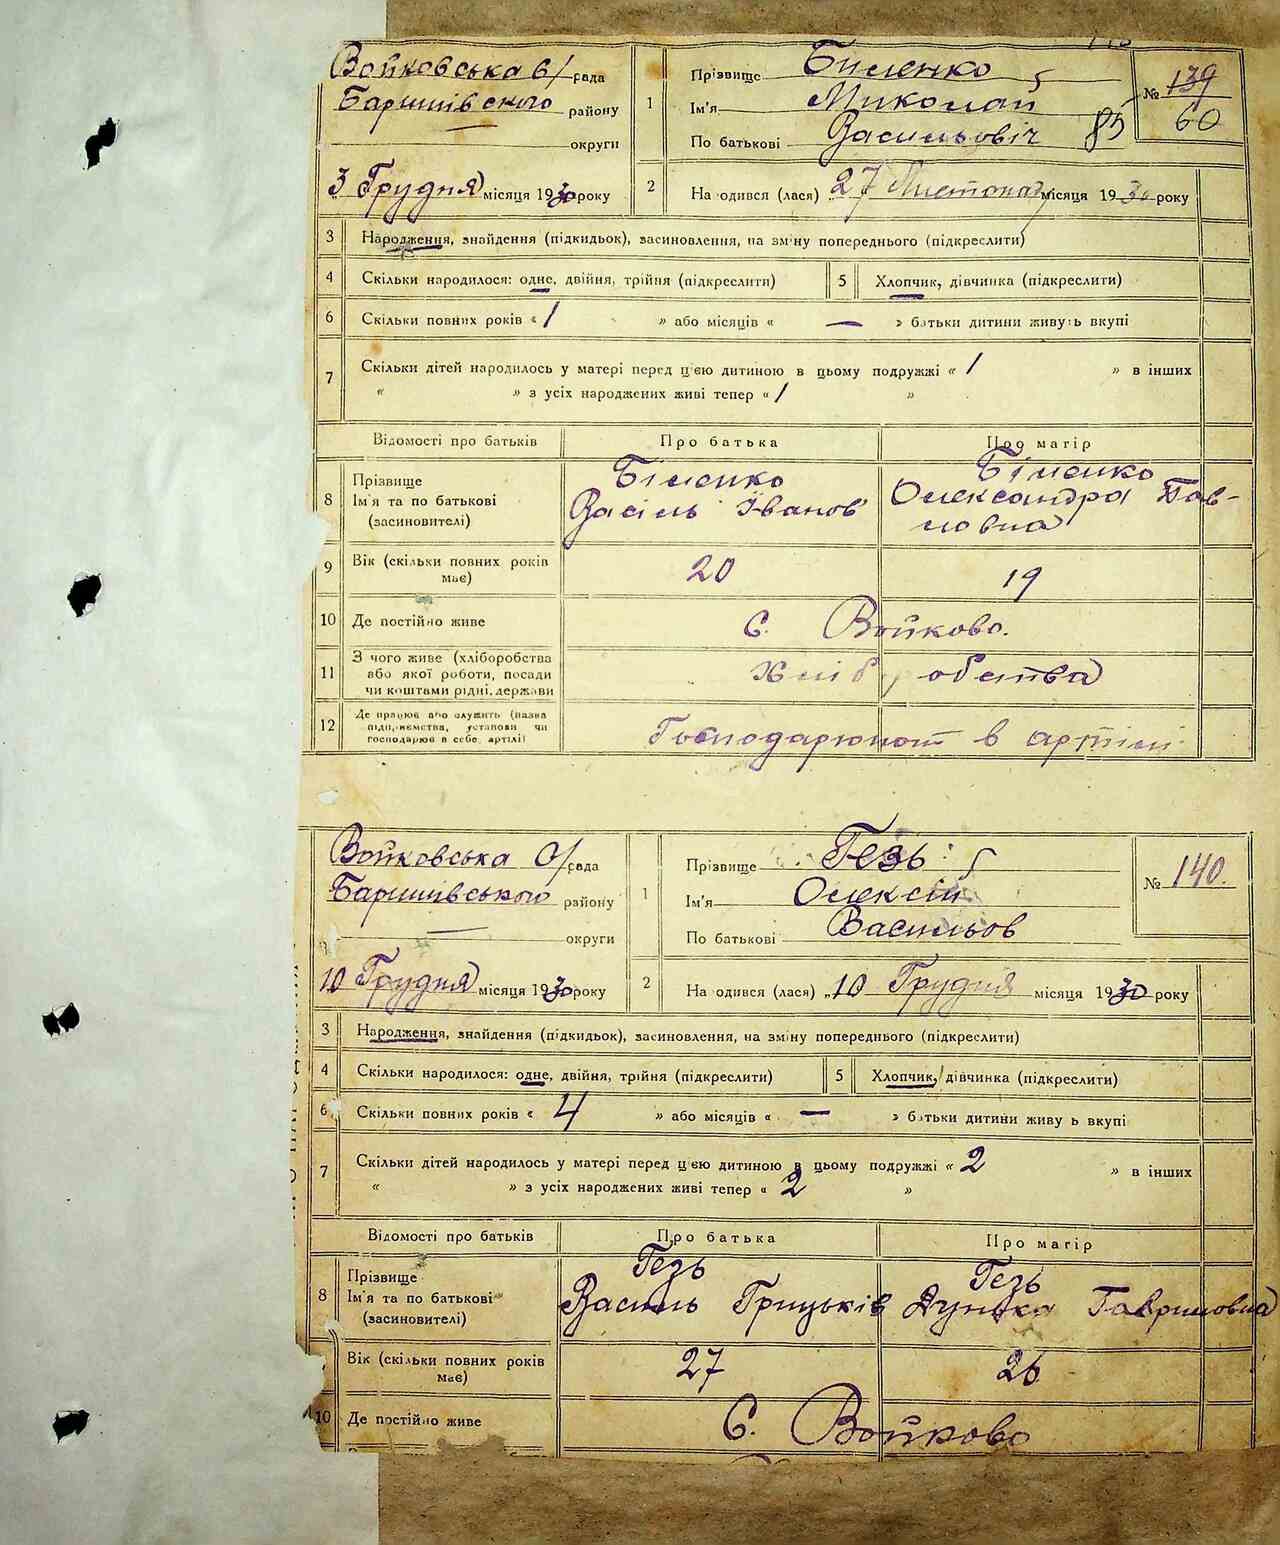 Войковська с/рада
Баришівського району
округи
3 Грудня місяця 1930 року
1
Прізвище Биленко
Ім'я Миколай
По батькові Васильовіч 85
№ 139
60
2 На одився (лася) 27 Листопад місяця 1930 року
3 Народження, знайдення (підкидьок), засиновлення, на зміну попереднього (підкреслити)
4 Скільки народилося: одне, двійня, трійня (підкреслити) 5 Хлопчик, дівчинка (підкреслити)
6 Скільки повних років « 1 » або місяців « — » батьки дитини живуть вкупі
7 Скільки дітей народилось у матері перед цією дитиною в цьому подружжі « 1 » в інших
« » з усіх народжених живі тепер « 1 »
Відомості про батьків Про батька Про матір
8 Прізвище Біленко Біленко
Ім'я та по батькові Васіль Іванов Олександра Пав-
(засиновителі) ловна
9 Вік (скільки повних років має) 20 19
10 Де постійно живе С. Войково.
11 З чого живе (хліборобства або якої роботи, посади чи коштами рідні, держави Хліборобства
12 Де працює або служить (назва підприємства, установи чи господарює в себе, артілі) Господарюют в артілі
Войковська с/рада
Баришівського району
округи
10 Грудня місяця 1930 року
1
Прізвище Гезь
Ім'я Олексій
По батькові Васильов
№ 140.
2 На одився (лася) „10 Грудня місяця 1930 року
3 Народження, знайдення (підкидьок), засиновлення, на зміну попереднього (підкреслити)
4 Скільки народилося: одне, двійня, трійня (підкреслити) 5 Хлопчик, дівчинка (підкреслити)
6 Скільки повних років « 4 » або місяців « — » батьки дитини живу ь вкупі
7 Скільки дітей народилось у матері перед цією дитиною в цьому подружжі « 2 » в інших
« » з усіх народжених живі тепер « 2 »
Відомості про батьків Про батька Про матір
8 Прізвище Гезь Гезь
Ім'я та по батькові Василь Грицьків Дунька Гавриловна
(засиновителі)
Вік (скільки повних років має) 27 26
10 Де постійно живе С. Войково